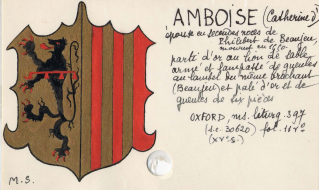 AMBOISE (Catherine d'
épouse en secondes noces de
Philibert de Beaujeu,
mourut en 1550.
parti d'or au lion de sable,
armé et lampassé de gueules
au lambel du même brochant
(Beaujeu) et palé d'or et de
gueules de six pièces
OXFORD, ms. liturg. 397
(s.c. 30620) fol.
(XVe s.)
M.S.